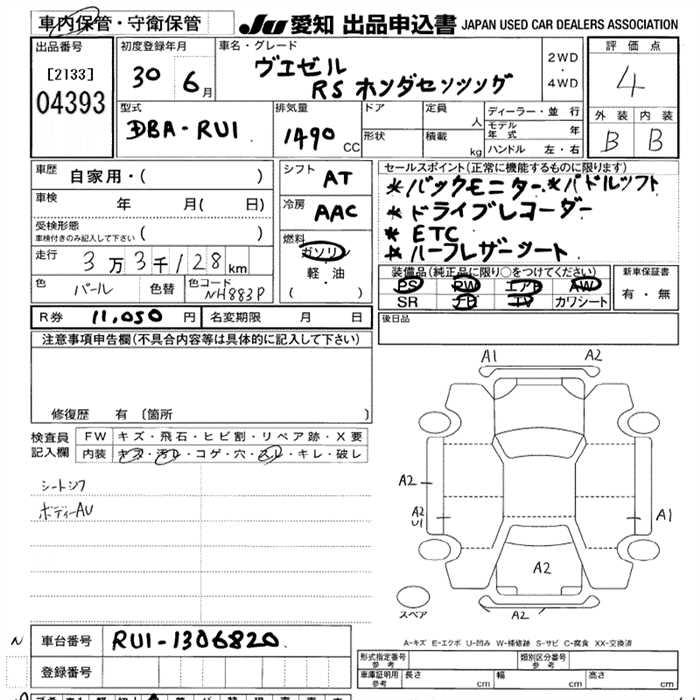 車内保管・守衛保管
JU 愛知 出品申込書 JAPAN USED CAR DEALERS ASSOCIATION
出品番号
[2133]
04393
初度登録年月
30 6月
車名・グレード
ヴェゼル
RS ホンダセンシング
2WD
・
4WD
評価点
4
外装 内装
B B
型式
DBA-RU1
排気量
1490 CC
ドア
形状
定員 人
積載 kg
ディーラー・並行
モデル年式 年
ハンドル 左・右
車歴 自家用・( )
車検 年 月( 日)
受検形態
車検付きのみ記入して下さい ( )
走行 3万3千128km
色 パール 色替 色コード NH883P
シフト AT
冷房 AAC
燃料
ガソリン
軽・油
( ・ )
セールスポイント(正常に機能するものに限ります)
*バックモニター*パドルシフト
*ドライブレコーダー
*ETC
*ハーフレザーシート
装備品(純正品に限り○をつけてください)
PS PW エアB AW
SR ナビ TV カワシート
新車保証書
有・無
R券 11,050円 名変期限 月 日
後日品
注意事項申告欄(不具合内容等は具体的に記入して下さい)
修復歴 有 〔箇所 〕
検査員
記入欄
FW キズ・飛石・ヒビ割・リペア跡・X要
内装 キズ・汚レ・コゲ・穴・スレ・キレ・破レ
シートシワ
ボディーAU
A1 A2
A2
A2
U1
A1
A2
A2
スペア
A-キズ E-エクボ U-凹み W-補修跡 S-サビ C-腐食 XX-交換済
N 車台番号 RU1-1306820
登録番号
形式指定番号
参考
類別区分番号
参考
車庫証明用
参考
長さ cm 幅 cm 高さ cm